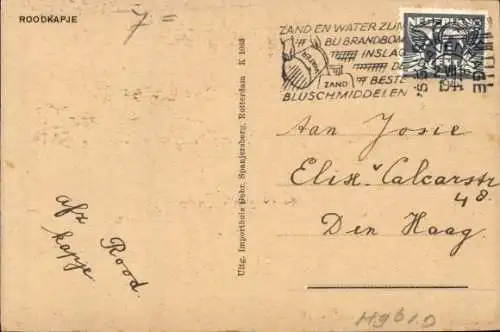 ROODKAPJE
7 =
ZAND EN WATER ZIJN
BIJ BRANDBOM
INSLAG
DE
BESTE
BLUSCHMIDDELEN
WATER
ZAND
NEDERLAND
1944
Aan Josie
Elis. v Calcarstr
48.
Den Haag.
afz Rood
kapje
Uitg. Importhuis Gebr. Spanjersberg, Rotterdam K 1063